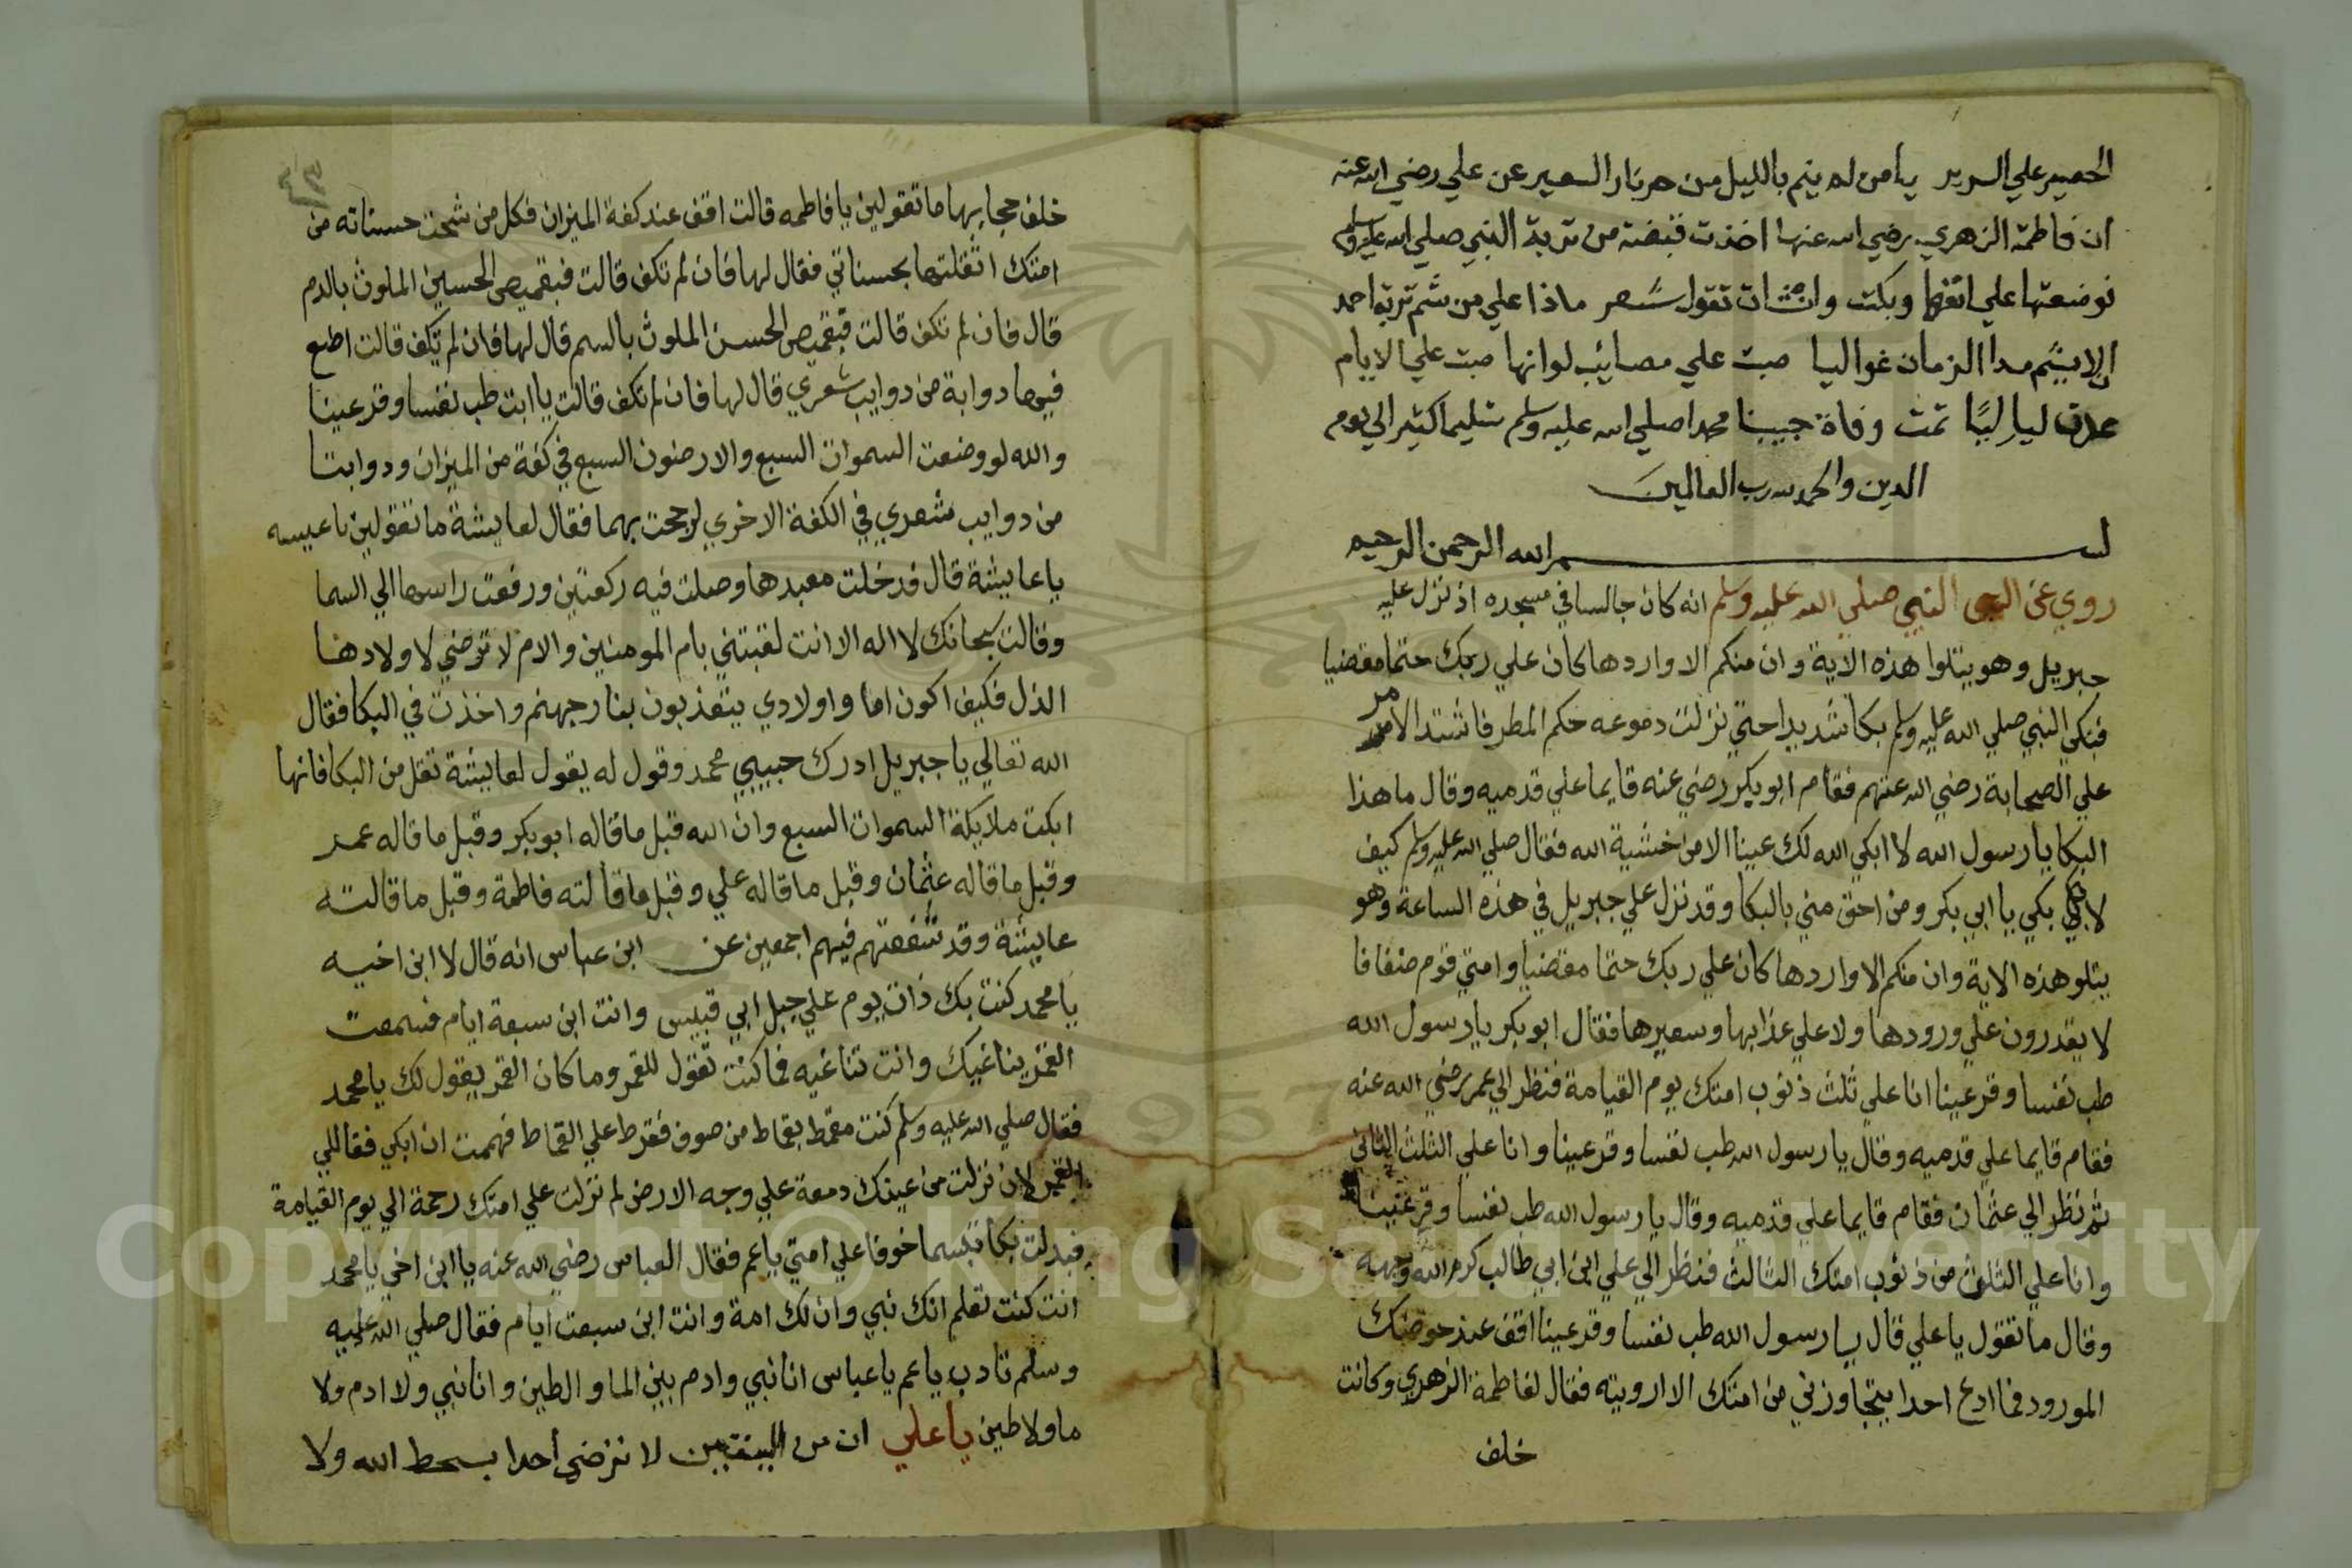 الحصير علي السرير يامن لم ينم بالليل من حر نار السعير عن علي رضي الله عنه
ان فاطمة الزهري رضي الله عنها اخذت قبضة من تربة النبي صلي الله عليه وسلم
فوضعتها علي انفها وبكت وانشات تقول شعر ماذا علي من شم تربة احمد
ان لا يشم مدا الزمان غواليا صبت علي مصائب لوانها صبت علي الايام
عدن لياليا تمت وفاة حبيبنا محمد صلي الله عليه وسلم تسليما كثير الي يوم
الدين والحمد لله رب العالمين
بسم الله الرحمن الرحيم
روي عن النبي صلي الله عليه وسلم انه كان جالسا في مسجده اذ نزل عليه
جبريل وهو يتلوا هذه الاية وان منكم الا واردها كان علي ربك حتما مقضيا
فبكي النبي صلي الله عليه وسلم بكا شديدا حتي نزلت دموعه حكم المطر فاشتد الامر
علي الصحابة رضي الله عنهم فقام ابو بكر رضي عنه قايما علي قدميه وقال ما هذا
البكا يا رسول الله لا ابكي الله لك عينا الا من خشية الله فقال صلي الله عليه وسلم كيف
لا بكي يا ابي بكر ومن احق مني بالبكا وقد نزل علي جبريل في هذه الساعة وهو
يتلو هذه الاية وان منكم الا واردها كان علي ربك حتما مقضيا وامتي قوم ضعافا
لا يقدرون علي ورودها ولا علي عذابها وسعيرها فقال ابو بكر يا رسول الله
طب نفسا وقر عينا انا علي ثلث ذنوب امتك يوم القيامة فنظر الي عمر رضي الله عنه
فقام قايما علي قدميه وقال يا رسول الله طب نفسا وقر عينا وانا علي الثلث الثاني
ثم نظر الي عثمان فقام قايما علي قدميه وقال يا رسول الله طب نفسا وقر عينا
وانا علي الثلث من ذنوب امتك الثالث فنظر الي علي ابن ابي طالب كرم الله وجهه
وقال ما تقول يا علي قال يا رسول الله طب نفسا وقر عينا اقف عند حوضك
المورود فما ادع احدا يتجاوزني من امتك الا ارويته فقال لفاطمة الزهري وكانت
خلف
خلف حجابها ما تقولين يا فاطمه قالت اقف عند كفة الميزان فكل من شحت حسناته من
امتك اثقلتها بحسناتي فقال لها فان لم تكف قالت فبقميص الحسين الملوث بالدم
قال فان لم تكف قالت فبقميص الحسن الملوث بالسم قال لها فان لم تكف قالت اضع
فيها دوابة من دوايب شعري قال لها فان لم تكف قالت يا ابت طب نفسا وقر عينا
والله لو وضعت السموات السبع والارضون السبع في كفة من الميزان ودوابتا
من دوايب شعري في الكفة الاخري لرجحت بهما فقال لعايشة ما تقولين
يا عايشة قال فدخلت معبدها وصلت فيه ركعتين ورفعت راسها الي السما
وقالت سبحانك لا اله الا انت لقبتني بام المومنين والام لا ترضي لاولادها
الذل فكيف اكون اما واولادي يتعذبون بنار جهنم واخذت في البكا فقال
الله تعالي يا جبريل ادرك حبيبي محمد وقول له يقول لعايشة تقل من البكا فانها
ابكت ملايكة السموات السبع وان الله قبل ما قاله ابو بكر وقبل ما قاله عمر
وقبل ما قاله عثمان وقبل ما قاله علي وقبل ما قالته فاطمة وقبل ما قالته
عايشة وقد شفعتهم فيهم اجمعين عن ابن عباس انه قال لا ابن اخيه
يا محمد كنت بك ذات يوم علي جبل ابي قبيس وانت ابن سبعة ايام فسمعت
القمر يناغيك وانت تناغيه فما كنت تقول للقمر وما كان القمر يقول لك يا محمد
فقال صلي الله عليه وسلم كنت مقمط بقماط من صوف فقرط علي القماط فهممت ان ابكي فقال لي
القمر لان نزلت من عينك دمعة علي وجه الارض لم نزلت علي امتك رحمة الي يوم القيامة
فبدلت بكا تبسما خوفا علي امتي يا عم فقال العباس رضي الله عنه يا ابن اخي يا محمد
انت كنت تعلم انك نبي وان لك امة وانت ابن سبعت ايام فقال صلي الله عليه
وسلم تادب يا عم يا عباس انا نبي وادم بين الما والطين وانا نبي ولا ادم ولا
ما ولا طين يا علي ان من اليقين لا ترضي أحدا بسخط الله ولا
Copyright © King Saud University
1957